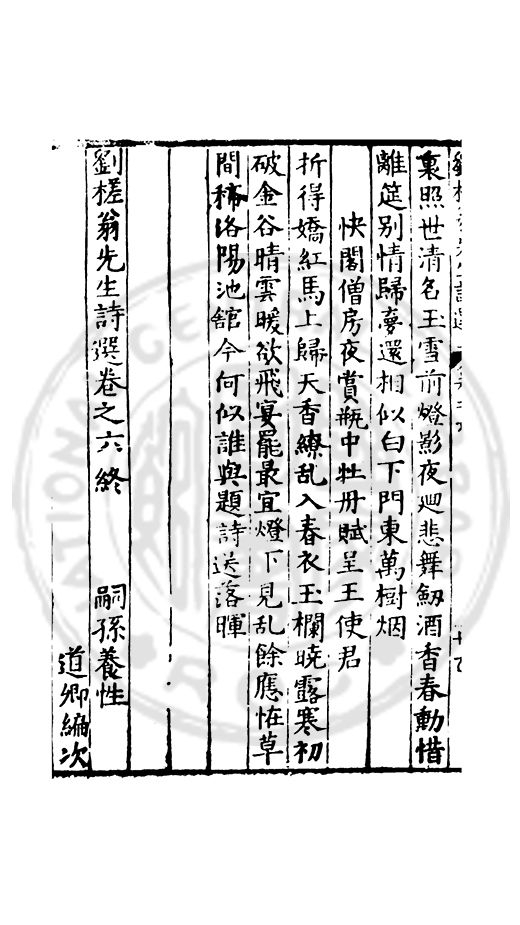 裏照世清名玉雪前燈影夜迴悲舞劒酒香春動惜
離筵别情歸夢還相似白下門東萬樹烟
快閣僧房夜賞瓶中牡丹賦呈王使君
折得嬌紅馬上歸天香繚乱入春衣玉欄曉露寒初
破金谷晴雲暖欲飛宴罷最宜燈下見乱餘應恠草
間稀洛陽池舘今何似誰與題詩送落暉
劉槎翁先生詩選卷之六終 嗣孫養性
道卿編次